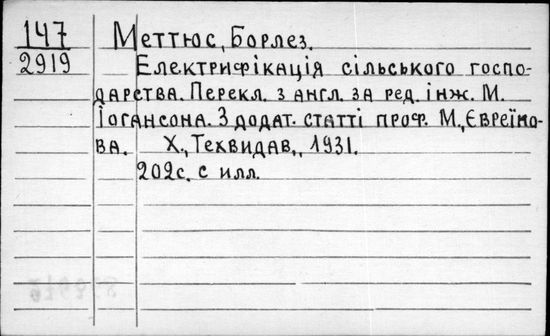 147
2919
Меттюс, Борлез.
Електрифікація сільського госпо-
дарства. Перекл. з англ. за ред. інж. М.
Іогансона. З додат. статті проф. М. Євреїно-
ва. Х., Теквидав., 1931.
202с. с илл.